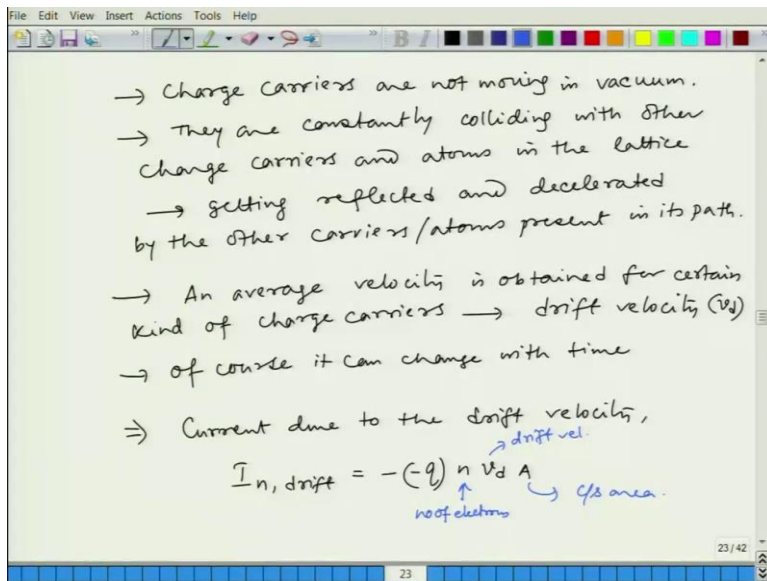 File Edit View Insert Actions Tools Help
B I
→ Charge carriers are not moving in vacuum.
→ They are constantly colliding with other
charge carriers and atoms in the lattice
→ getting reflected and decelerated
by the other carriers/atoms present in its path.
→ An average velocity is obtained for certain
kind of charge carriers → drift velocity (vd)
→ of course it can change with time
⇒ Current due to the drift velocity,
→ drift vel.
In, drift = -(-q) n vd A
↑ → c/s area.
no of electrons
23/42
23